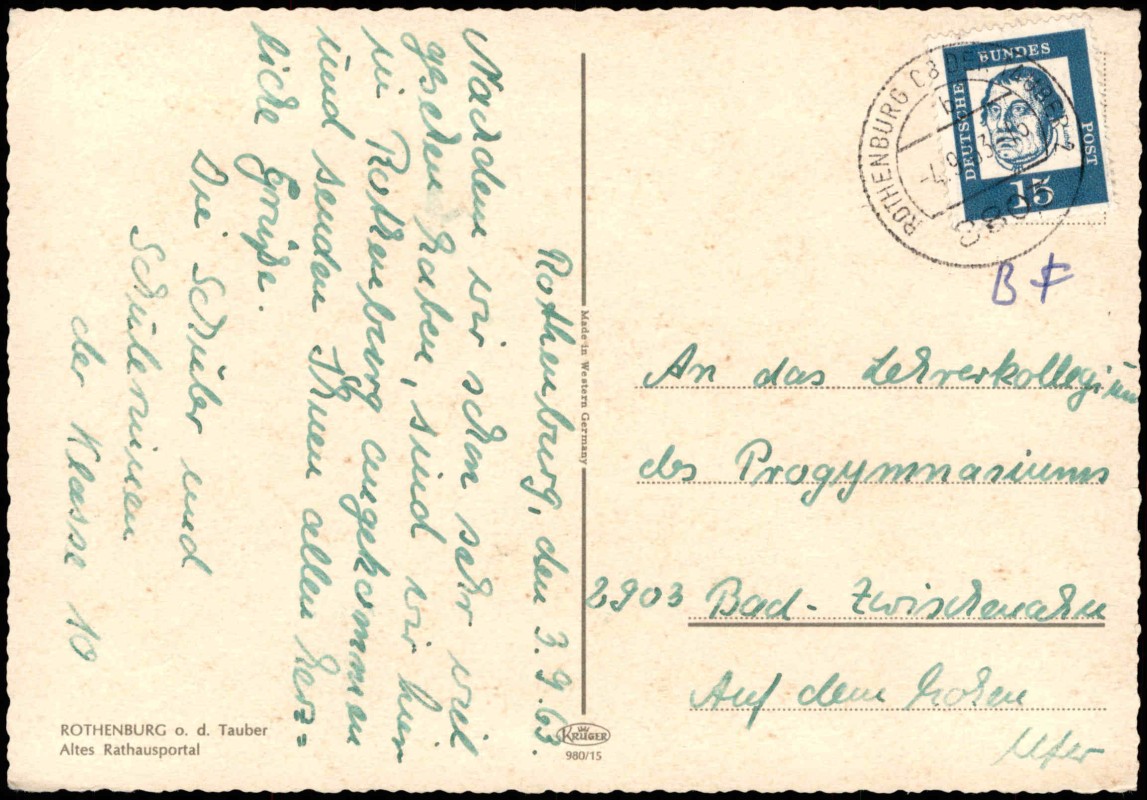 Rothenburg, den 3.9.63.
Nachdem wir schon sehr viel
gesehen haben, sind wir hier
in Rothenburg angekommen
und senden Ihnen allen herz=
liche Grüße.
Die Schüler und
Schülerinnen
der Klasse 10
ROTHENBURG o. d. Tauber
Altes Rathausportal
Made in Western Germany
KRÜGER
980/15
DEUTSCHE BUNDESPOST
15
ROTHENBURG OB DER TAUBER
-4.9.63
8803
B F
An das Lehrerkollegium
des Progymnasiums
2903 Bad-Zwischenahn
Auf dem hohen
Ufer